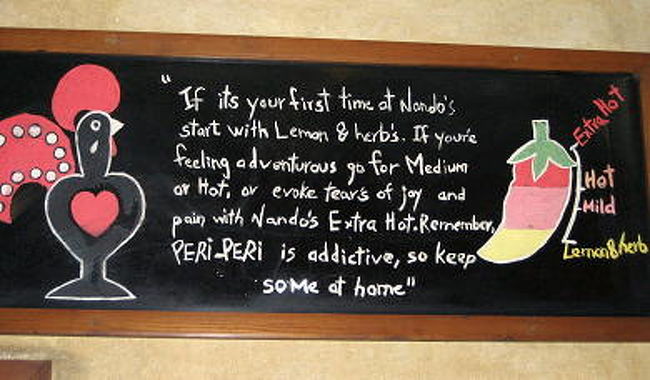 "If its your first time at Nando's
start with Lemon & herb's. If you're
feeling adventurous go for Medium
or Hot, or evoke tear's of joy and
pain with Nando's Extra Hot. Remember,
PERi-PERi is addictive, so keep
some at home"
Extra Hot
Hot
Mild
Lemon & herb